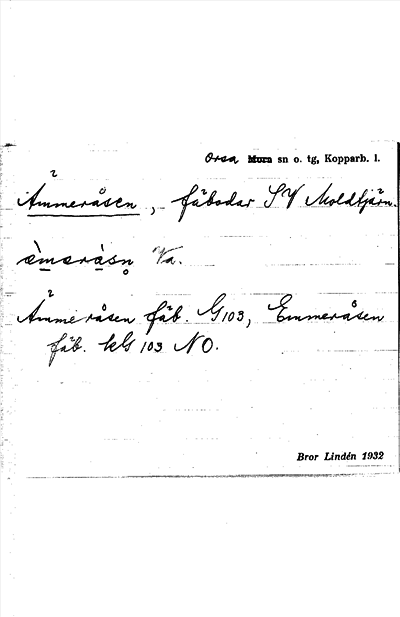 Orsa Mora sn o. tg, Kopparb. l.
Ämmeråsen, fäbodar SV Moldtjärn.
æ̀meràsn̥ Va.
Ämmeråsen fäb. G103, Emmeråsen
fäb. kG 103 NO.
Bror Lindén 1932